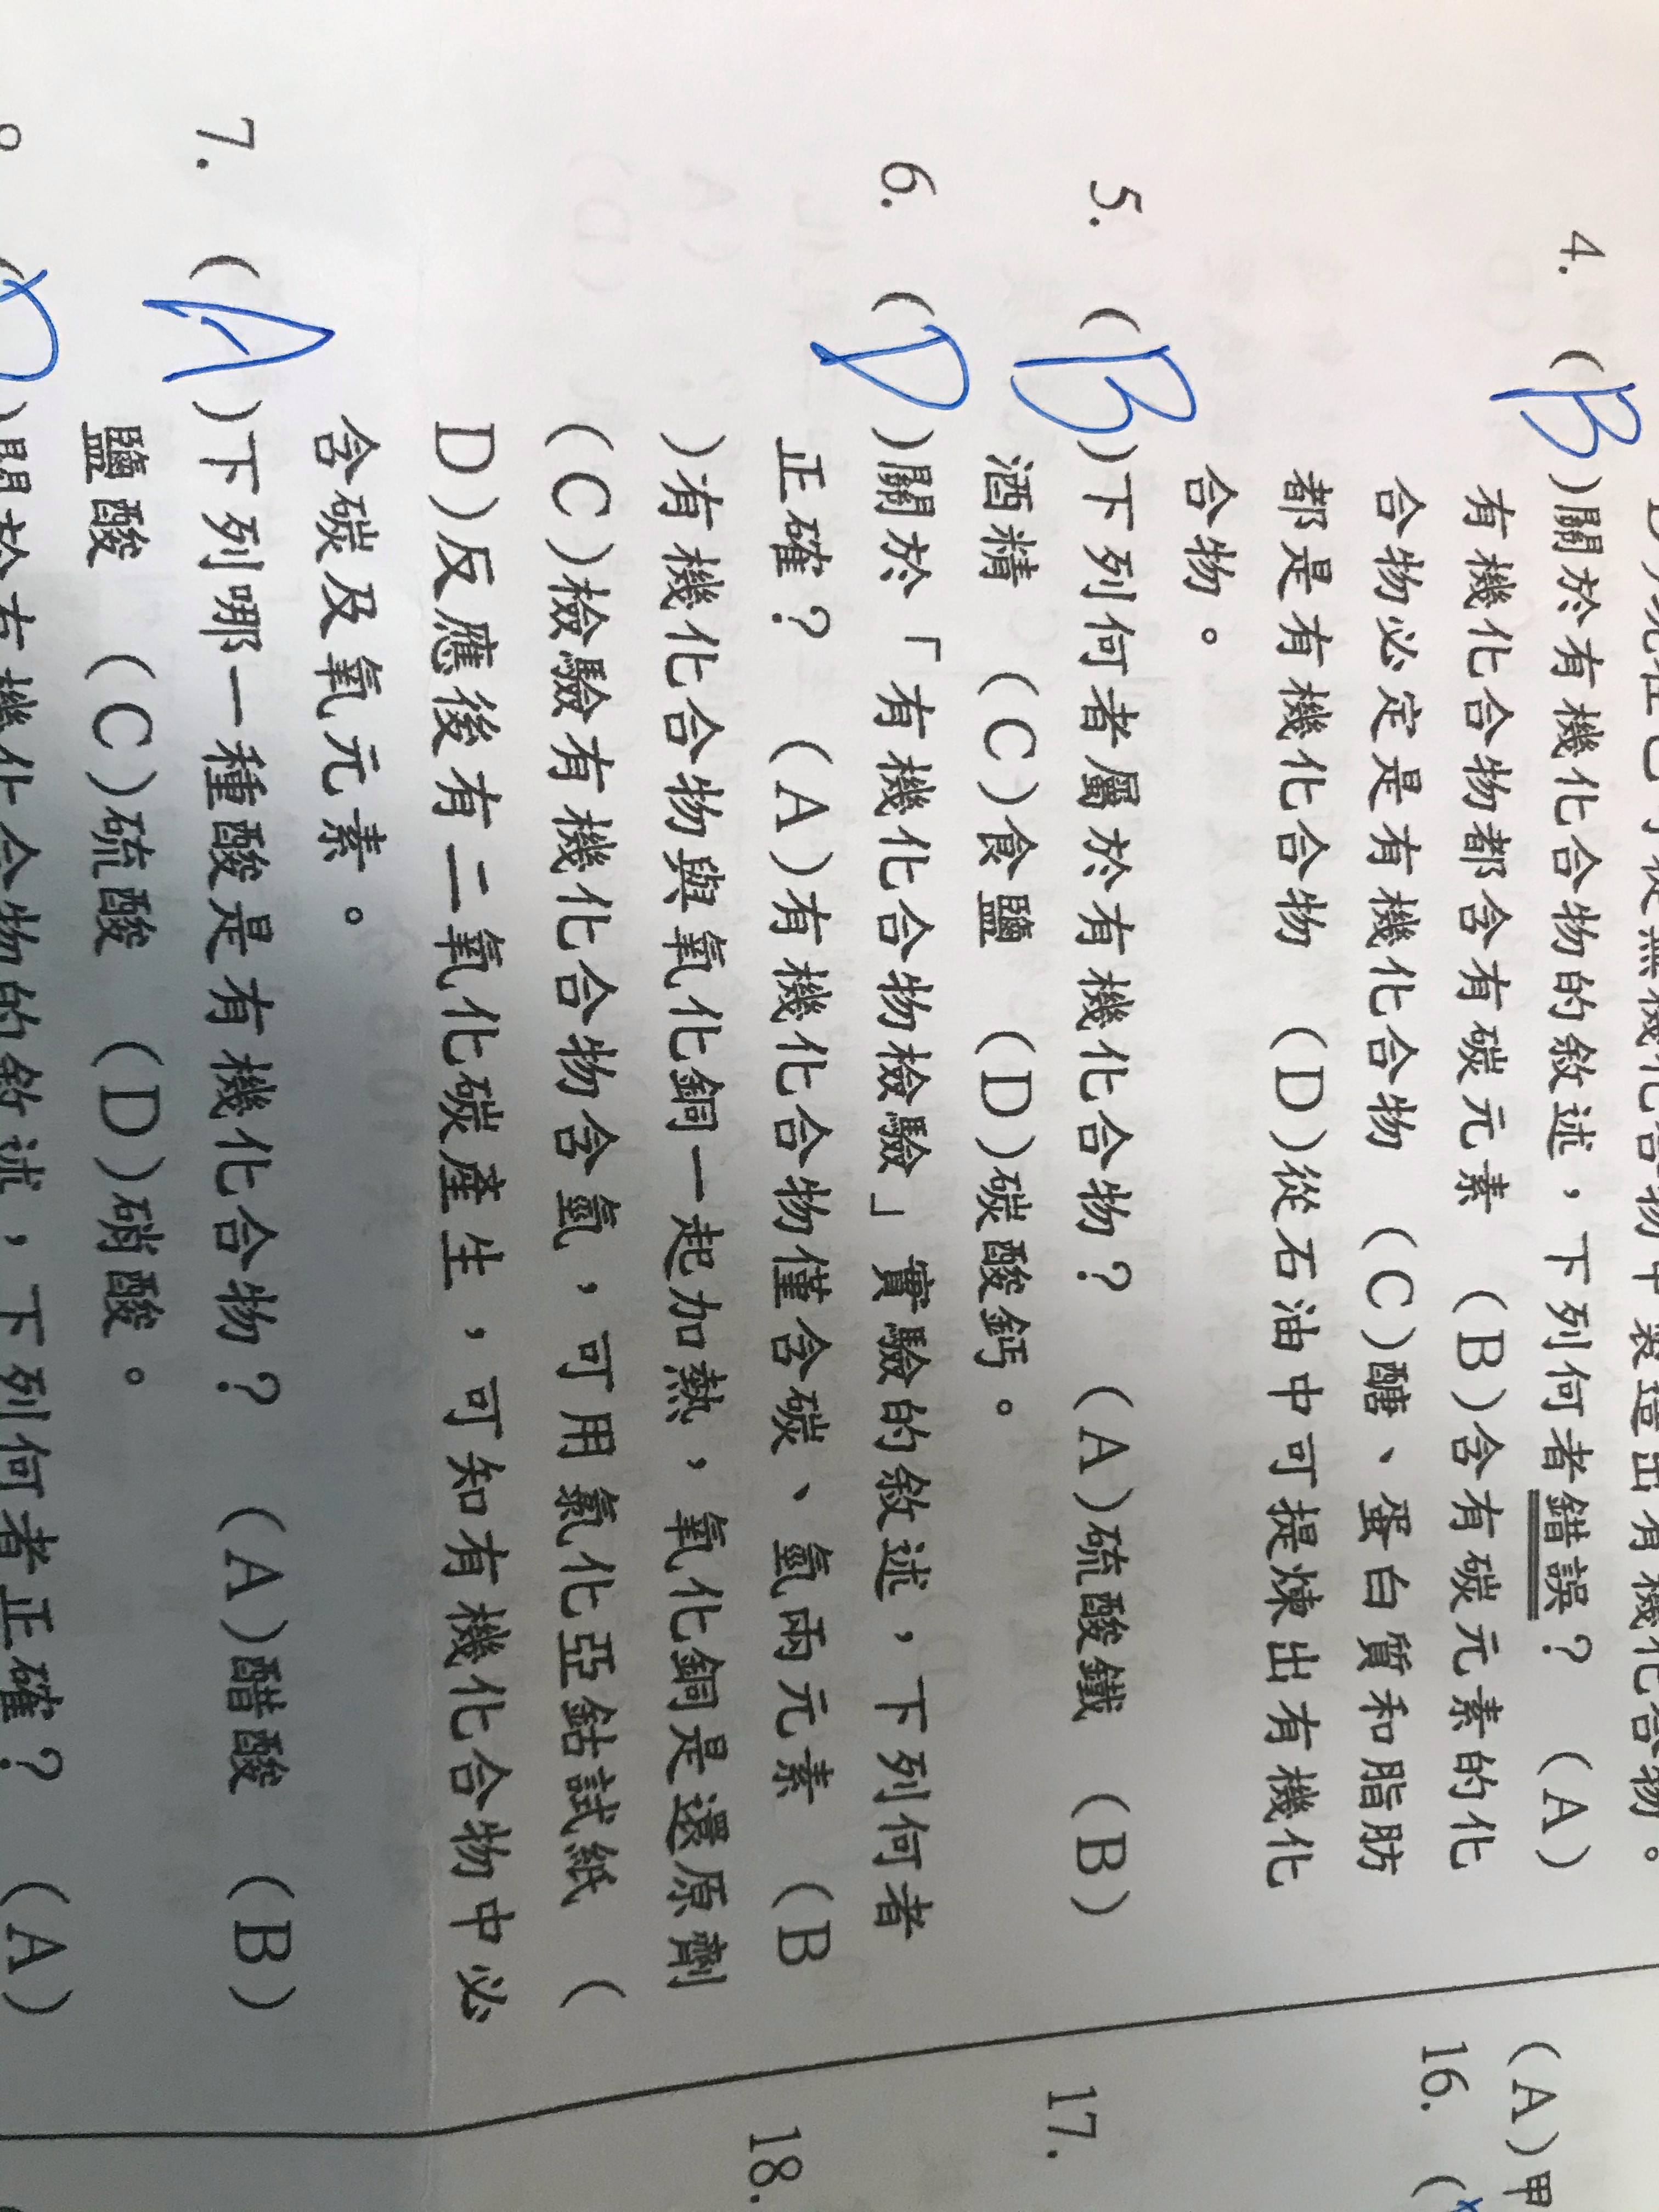 4. (B)關於有機化合物的敘述，下列何者錯誤？ (A)
有機化合物都含有碳元素 (B)含有碳元素的化
合物必定是有機化合物 (C)醣、蛋白質和脂肪
都是有機化合物 (D)從石油中可提煉出有機化
合物。
5. (B)下列何者屬於有機化合物？ (A)硫酸鐵 (B)
酒精 (C)食鹽 (D)碳酸鈣。
6. (D)關於「有機化合物檢驗」實驗的敘述，下列何者
正確？ (A)有機化合物僅含碳、氫兩元素 (B
)有機化合物與氧化銅一起加熱，氧化銅是還原劑
(C)檢驗有機化合物含氫，可用氯化亞鈷試紙 (
D)反應後有二氧化碳產生，可知有機化合物中必
含碳及氧元素。
7. (A)下列哪一種酸是有機化合物？ (A)醋酸 (B)
鹽酸 (C)硫酸 (D)硝酸。
)關於有機化合物的敘述，下列何者正確？ (A)
(A)甲
16. (
17.
18.